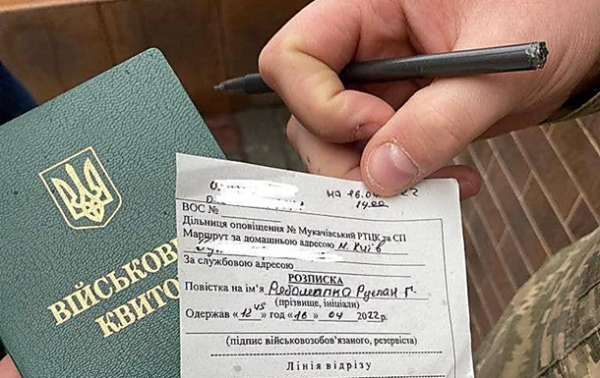 ВІЙСЬКОВИ
КВИТО
на 16.0 22
14 00
ВОС №
Дільниця оповіщення № Мукачівський РТЦК за СП
Маршрут за домашньою адресою м. Київ
За службовою адресою
РОЗПИСКА
Повістка на ім'я Руслан Г.
(прізвище, ініціали)
Одержав « 12 45 » год « 16 » 04 2022 р.
(підпис військовозобов'язаного, резервіста)
Лінія відрізу